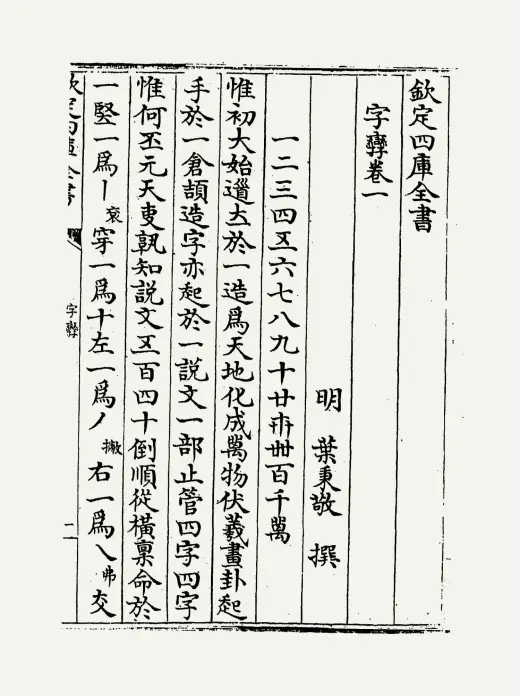 欽定四庫全書
字孿卷一
明 葉秉敬 撰
一二三四五六七八九十廿卅卌百千萬
惟初大始道立於一造為天地化成萬物伏羲畫卦起
手於一倉頡造字亦起於一說文一部止管四字四字
惟何丕元天吏孰知說文五百四十倒順從橫稟命於
一竪一為丨衮穿一為十左一為丿撇右一為乀弗交
欽定四庫全書
字孿
二